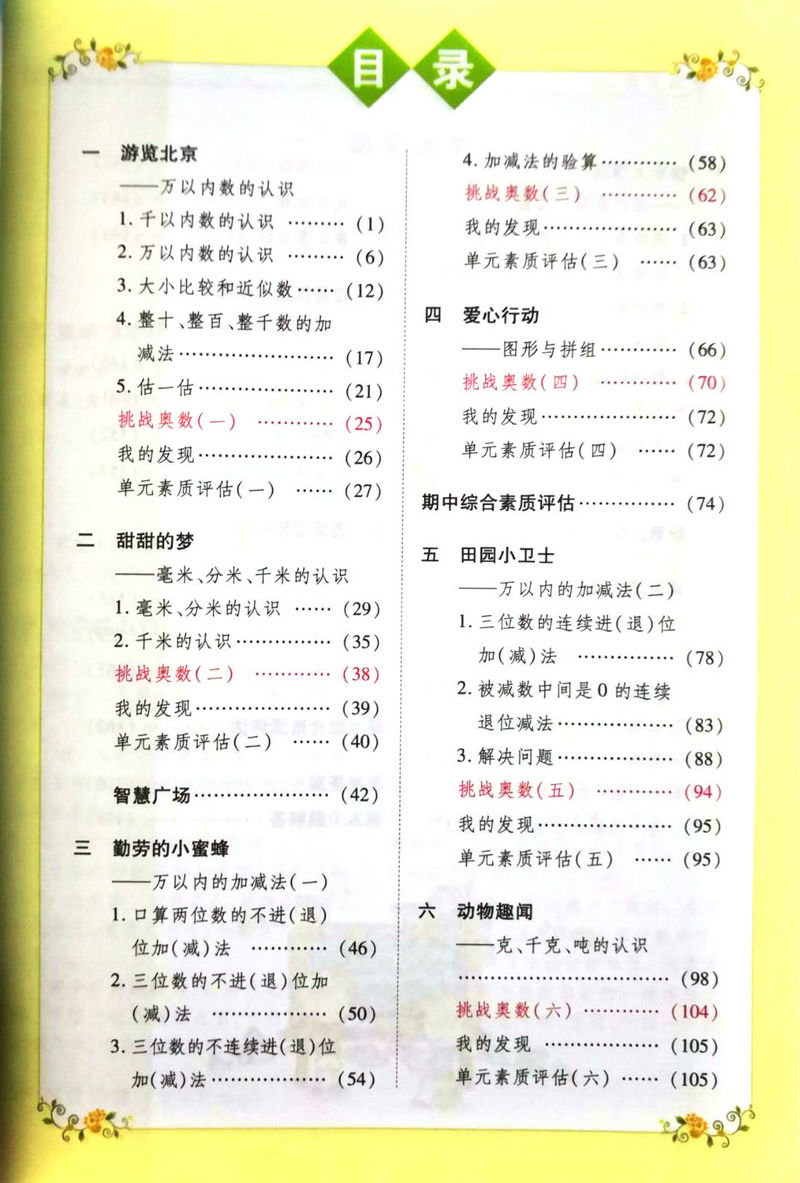 目录
一 游览北京
——万以内数的认识
1. 千以内数的认识 ……… (1)
2. 万以内数的认识 ……… (6)
3. 大小比较和近似数…… (12)
4. 整十、整百、整千数的加
减法…………………… (17)
5. 估一估………………… (21)
挑战奥数(一) ………… (25)
我的发现………………… (26)
单元素质评估(一) …… (27)
二 甜甜的梦
——毫米、分米、千米的认识
1. 毫米、分米的认识 …… (29)
2. 千米的认识…………… (35)
挑战奥数(二) ………… (38)
我的发现………………… (39)
单元素质评估(二) …… (40)
智慧广场………………… (42)
三 勤劳的小蜜蜂
——万以内的加减法(一)
1. 口算两位数的不进(退)
位加(减)法 ………… (46)
2. 三位数的不进(退)位加
(减)法 ……………… (50)
3. 三位数的不连续进(退)位
加(减)法……………… (54)
4. 加减法的验算………… (58)
挑战奥数(三) ………… (62)
我的发现………………… (63)
单元素质评估(三) …… (63)
四 爱心行动
——图形与拼组………… (66)
挑战奥数(四) ………… (70)
我的发现………………… (72)
单元素质评估(四) …… (72)
期中综合素质评估…………… (74)
五 田园小卫士
——万以内的加减法(二)
1. 三位数的连续进(退)位
加(减)法 …………… (78)
2. 被减数中间是0的连续
退位减法……………… (83)
3. 解决问题……………… (88)
挑战奥数(五) ………… (94)
我的发现………………… (95)
单元素质评估(五) …… (95)
六 动物趣闻
——克、千克、吨的认识
…………………………… (98)
挑战奥数(六) ………… (104)
我的发现 ……………… (105)
单元素质评估(六) …… (105)